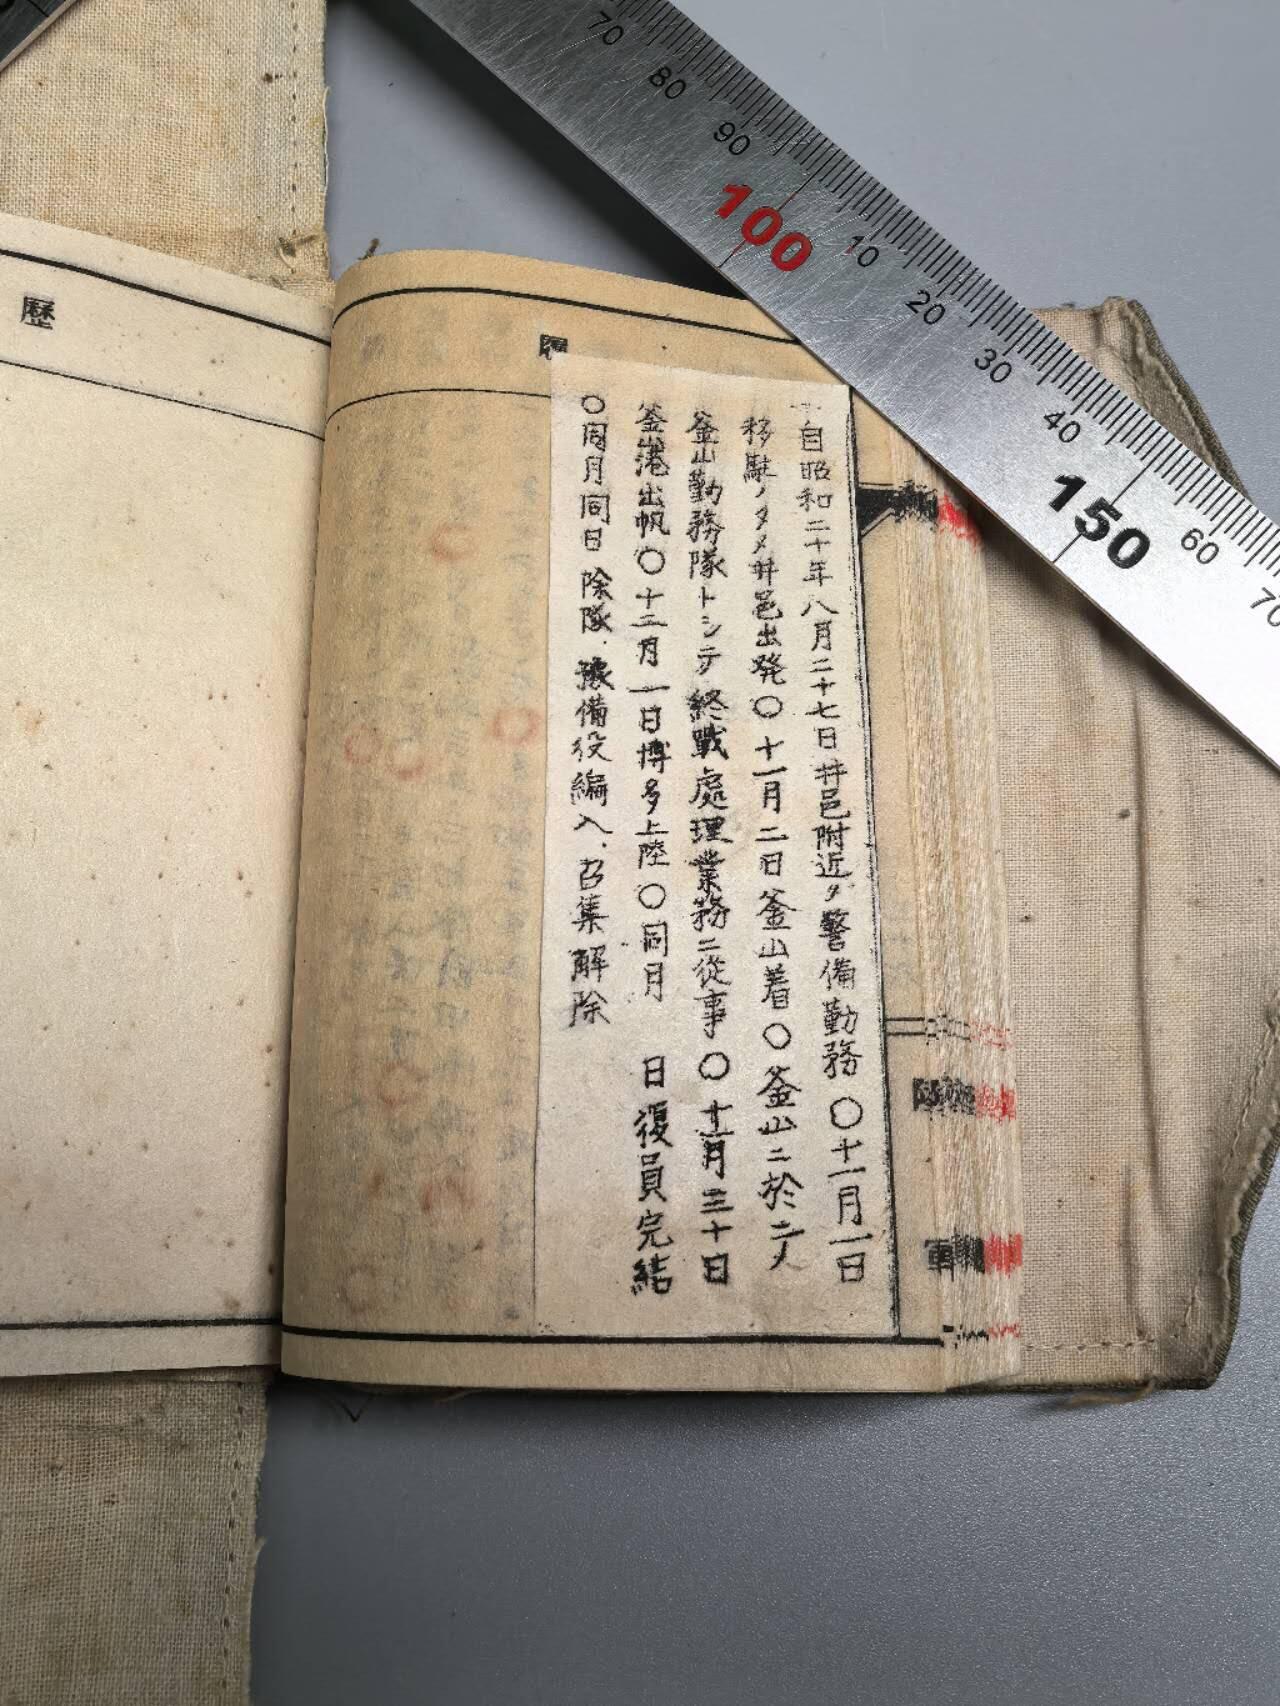 自昭和二十年八月二十七日井邑附近ノ警備勤務〇十一月一日
移駐ノタメ井邑出発〇十一月二日釜山着〇釜山ニ於テハ
釜山勤務隊トシテ終戰處理業務ニ從事〇十一月三十日
釜山港出帆〇十二月一日博多上陸〇同月 日復員完結
〇同月同日除隊、豫備役編入、召集解除
履
歴
軍
70
80
90
100
10
20
30
40
150
60
70